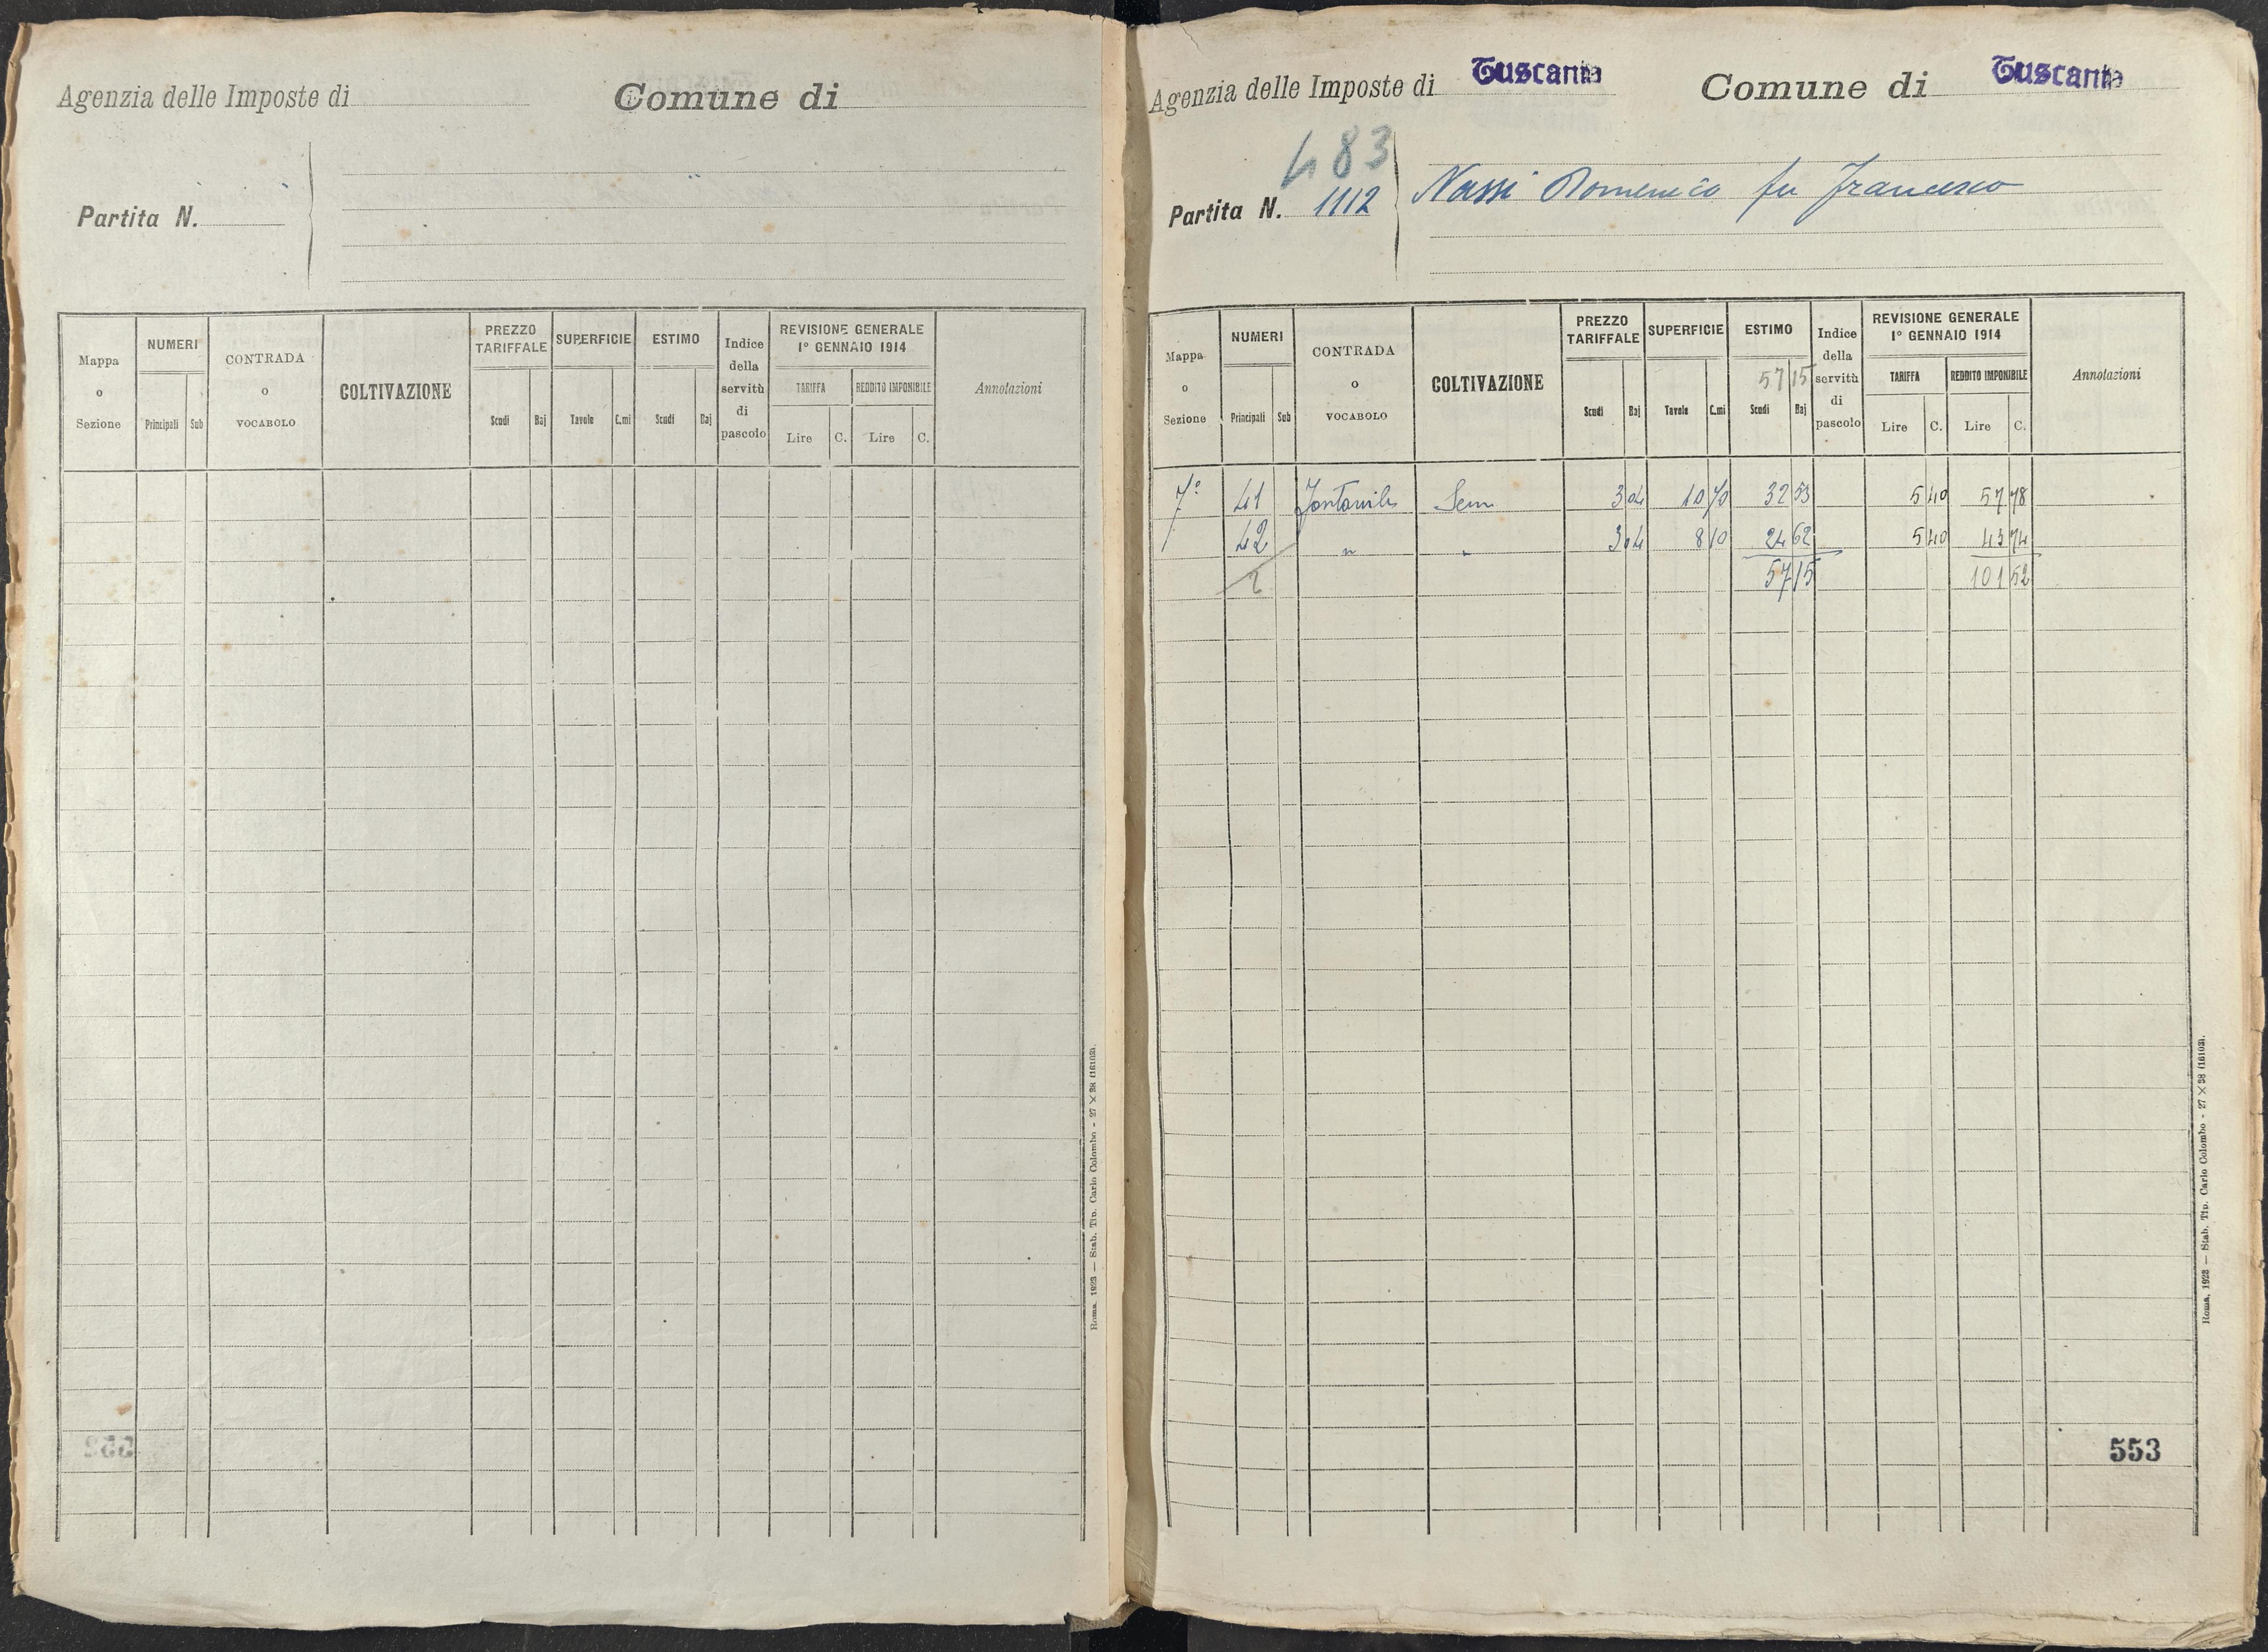 Agenzia delle Imposte di
Comune di
Partita N.
Mappa o Sezione
NUMERI
Principali Sub
CONTRADA o VOCABOLO
COLTIVAZIONE
PREZZO TARIFFALE
Scudi Baj
SUPERFICIE
Tavole C.mi
ESTIMO
Scudi Baj
Indice della servitù di pascolo
REVISIONE GENERALE
1° GENNAIO 1914
TARIFFA REDDITO IMPONIBILE
Lire C. Lire C.
Annotazioni
Roma, 1923 — Stab. Tip. Carlo Colombo - 27 × 38 (16103).
Agenzia delle Imposte di Tuscania
Comune di Tuscania
483
Partita N. 1112
Nassi Domenico fu Francesco
Mappa o Sezione
NUMERI
Principali Sub
CONTRADA o VOCABOLO
COLTIVAZIONE
PREZZO TARIFFALE
Scudi Baj
SUPERFICIE
Tavole C.mi
ESTIMO
57 15
Scudi Baj
Indice della servitù di pascolo
REVISIONE GENERALE
1° GENNAIO 1914
TARIFFA REDDITO IMPONIBILE
Lire C. Lire C.
Annotazioni
7° 41 Fontanile Sem 3 04 10 70 32 53 5 40 57 78
42 " " 3 04 8 10 24 62 5 40 43 74
2 57 15 101 52
553
Roma, 1923 — Stab. Tip. Carlo Colombo - 27 × 38 (16103).